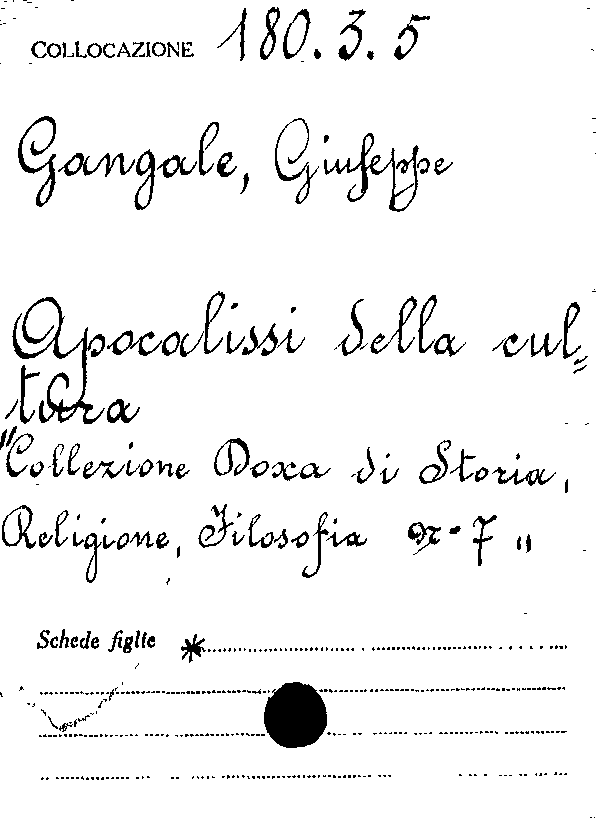 COLLOCAZIONE 180.3.5
Gangale, Giuseppe
Apocalissi della cul=
tura
"Collezione Doxa di Storia,
Religione, Filosofia nr. 7"
Schede figlie *